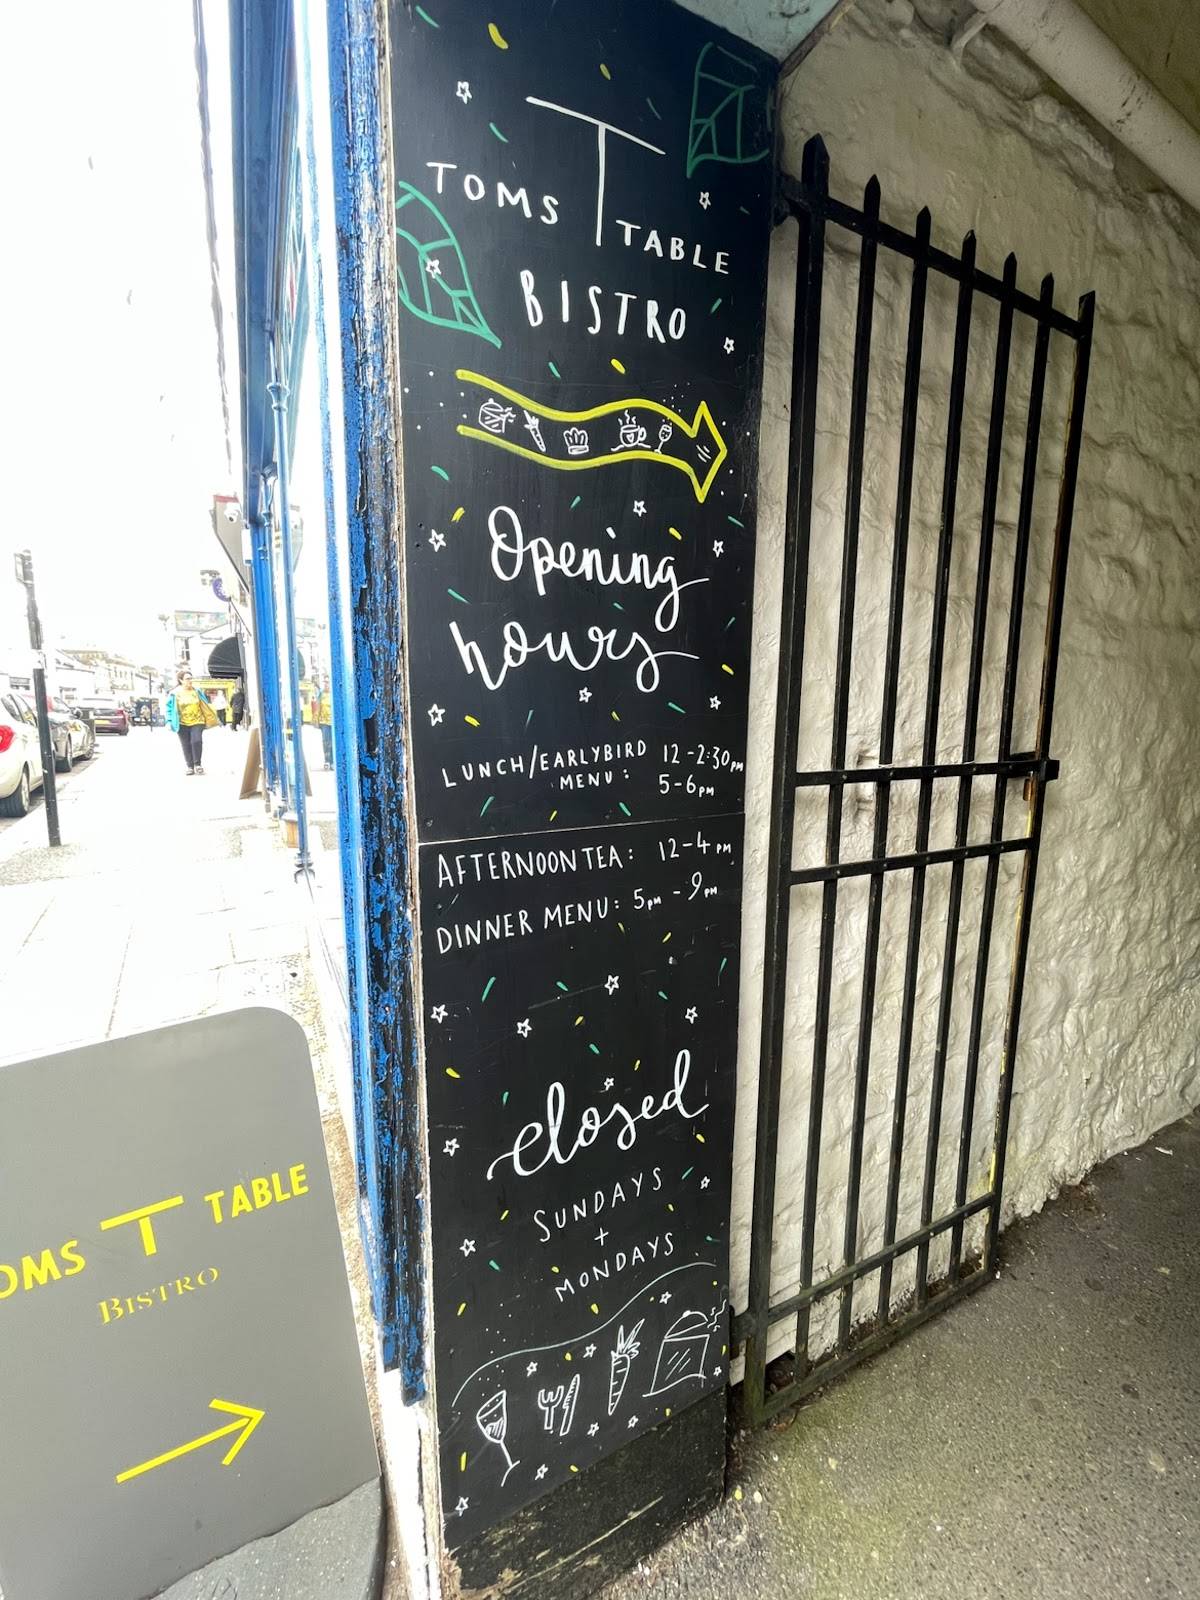 TOMS T TABLE
BISTRO
Opening
hours
LUNCH/EARLYBIRD 12-2:30PM
MENU: 5-6PM
AFTERNOON TEA: 12-4 PM
DINNER MENU: 5PM - 9PM
closed
SUNDAYS
+
MONDAYS
OMS T TABLE
BISTRO